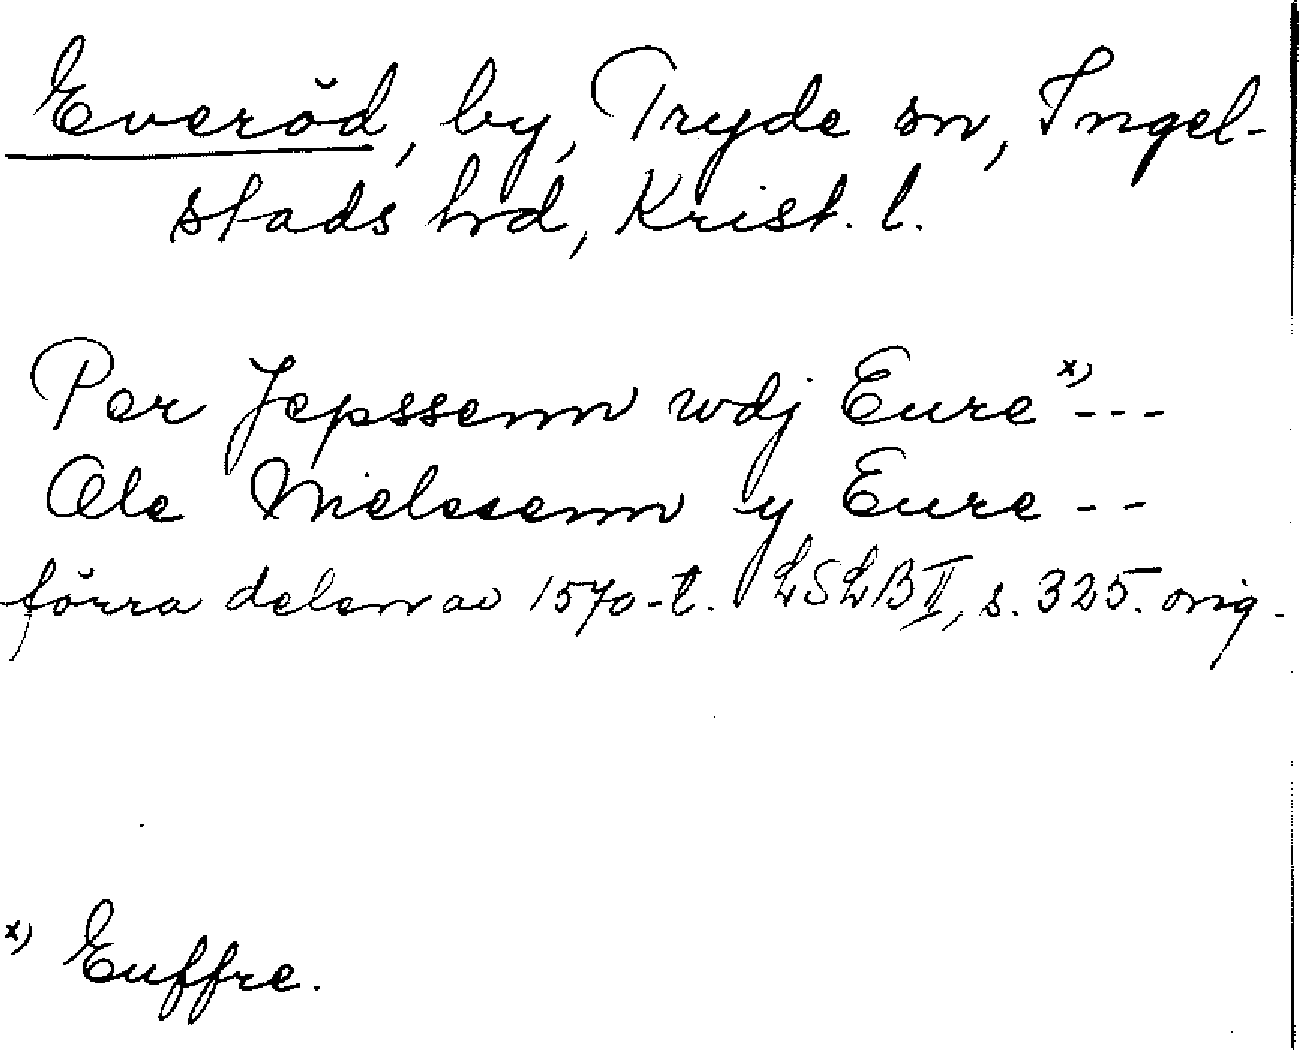 Everöd, by, Tryde sn, Ingel-
stads hrd, Krist. l.
Per Jepssenn wdj Eure x) ---
Ole Nielssenn y Eure --
förra delen av 1570-t. LSLB II, s. 325. orig.
x) Euffre.